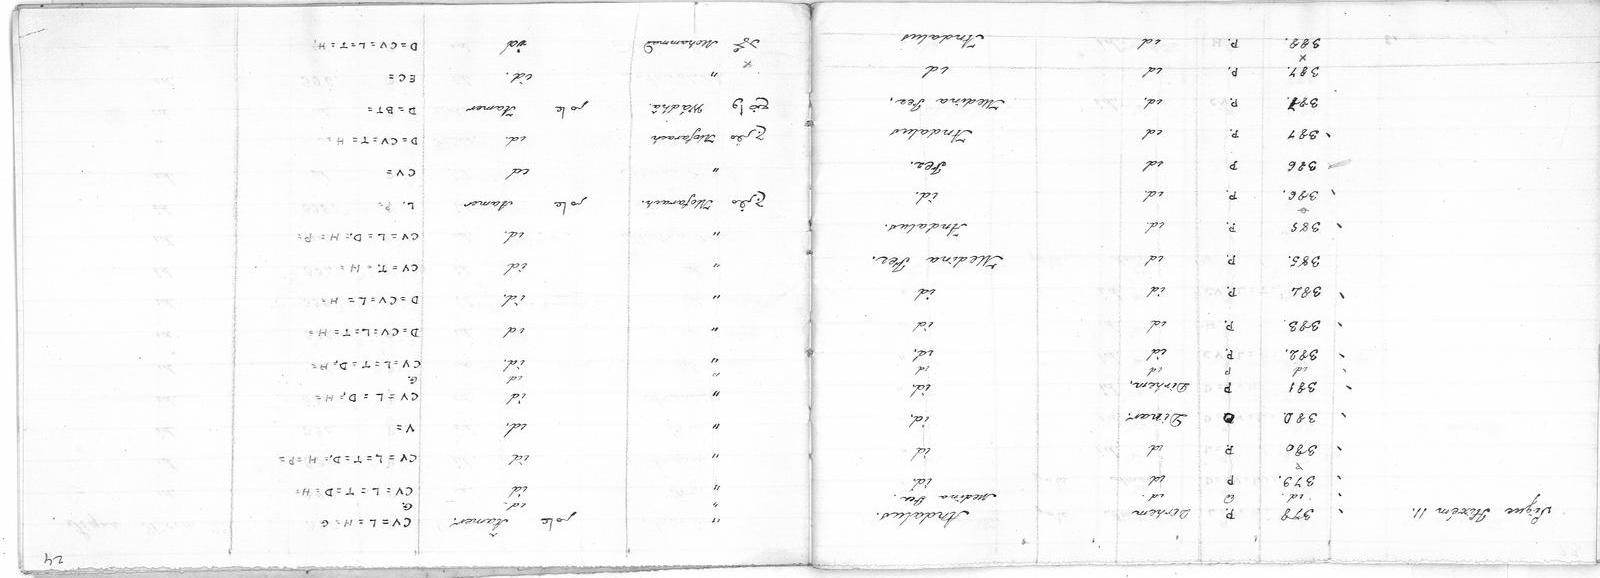 24
Sigue Hixém II. 378 P. Dirhem Andalus. " pole Aamer. CV=L=H=G
id. O id. Medina Fez. id. G.
379. P id id. " id CV=L=T=D=H=
380 P. id id " id CV=L=T=D=H=P=
380 O Dinar. id. " id. V=
381 P Dirhem. id. " id CV=L=D=H=
id P id id " id G.
382. P. id id. " id. CV=L=T=D=H=
383. P. id id " id D=CV=L=T=H=
384 P. id id " id. D=CV=L=H=
385. P. id Medina Fez. " id CV=T=H=
385 P. id Andalus. " id. CV=L=D=H=P=
386. P. id. id. مفرج Mofarech. pole Aamer L. P=
386 P id Fez. " id CV=
387 P. id Andalus مفرج Mofarech id. D=CV=T=H=
387. P. id. Medina Fez. pole Aamer D=BT=
387. P. id id " id. EC=
388. P. id Andalus Mohammad id D=CV=L=T=H.